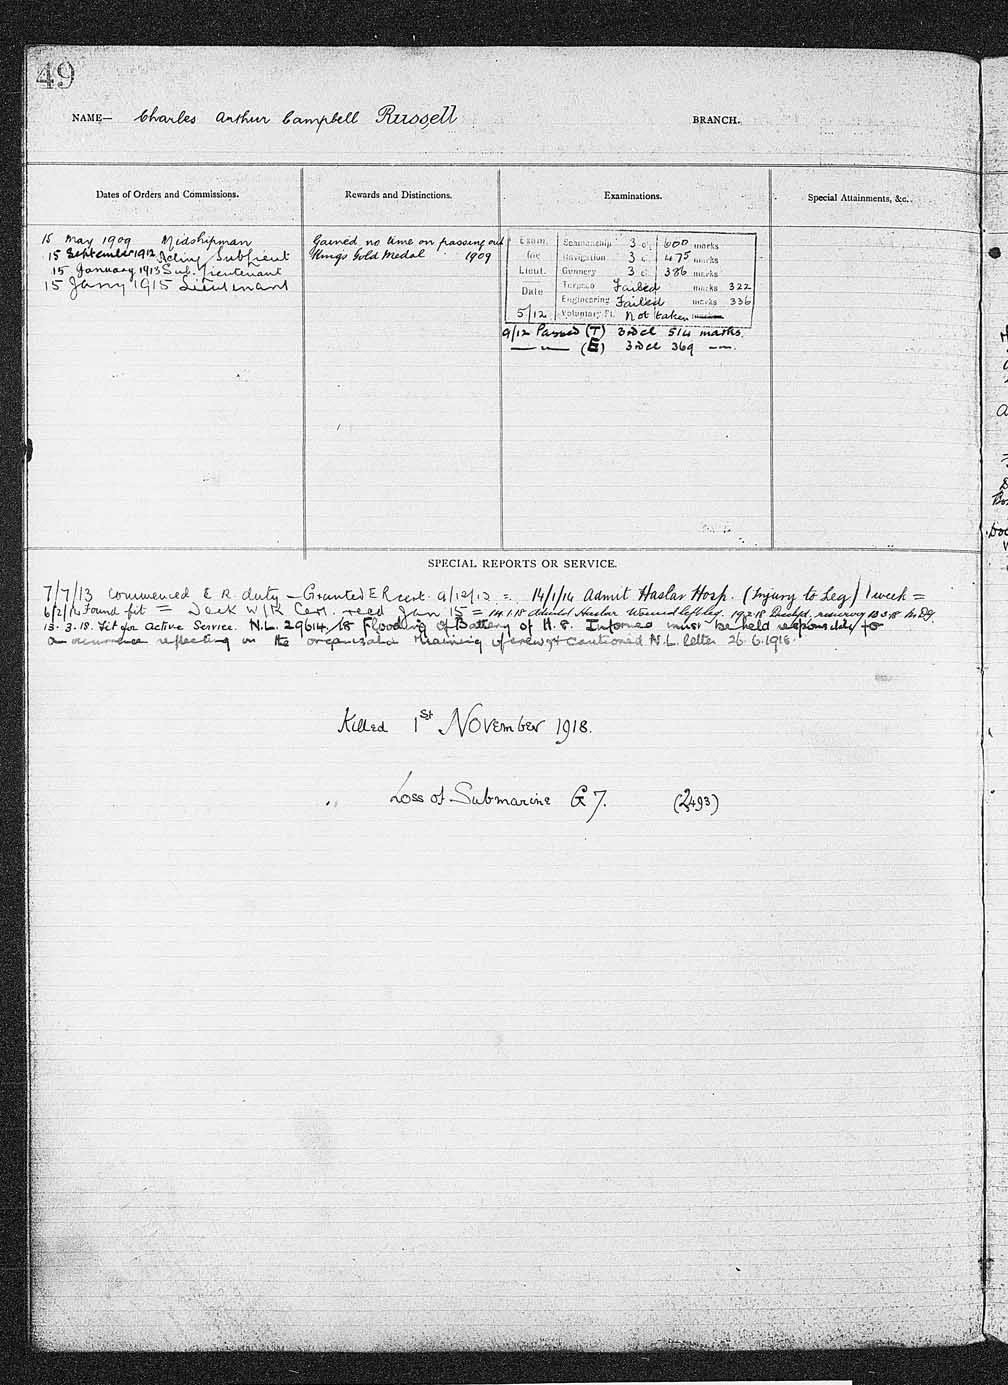 49
NAME— Charles Arthur Campbell Russell BRANCH.
Dates of Orders and Commissions. Rewards and Distinctions. Examinations. Special Attainments, &c.
15 May 1909 Midshipman
15 September 1912 Acting SubLieut
15 January 1913 Sub. Lieutenant
15 Janry 1915 Lieutenant
Gained no time on passing out
Kings Gold Medal 1909
Exam. for Lieut. Date 5/12
Seamanship 3 cl. 600 marks
Navigation 3 c. 475 marks
Gunnery 3 c. 386 marks
Torpedo Failed marks 322
Engineering Failed marks 336
Voluntary Pt. Not taken
9/12 Passed (T) 3rd cl 514 marks.
— — (E) 3rd cl 369 —
SPECIAL REPORTS OR SERVICE.
7/7/13 commenced E R. duty — Granted E R cert. 9/12/13 = 14/1/14 Admit Haslar Hosp. (Injury to Leg) 1 week =
6/2/14 Found fit = Deck W/K Cert. recd Jan 15 = 14.1.18 Admitted Haslar Wound left leg. 19.2.18
13.3.18. Fit for Active Service. N.L. 29614/18 Flooding of Battery of H.8. Informed must be held responsible for
an occurrence reflecting on the organisation & training of crew, & cautioned N.L. letter 26.6.1918.
Killed 1st November 1918.
Loss of Submarine G 7. (2493)